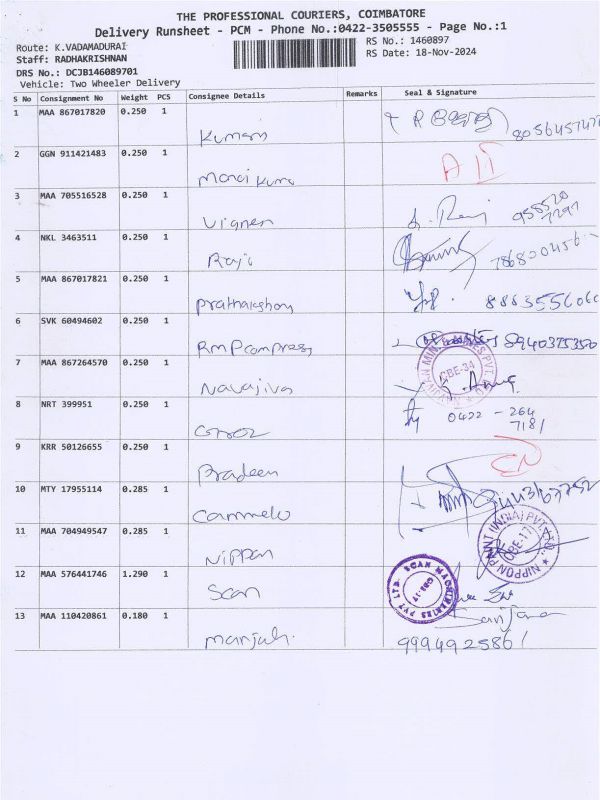 THE PROFESSIONAL COURIERS, COIMBATORE
Delivery Runsheet - PCM - Phone No.:0422-3505555 - Page No.:1
Route: K.VADAMADURAI
RS No.: 1460897
Staff: RADHAKRISHNAN
RS Date: 18-Nov-2024
DRS No.: DCJB146089701
Vehicle: Two Wheeler Delivery
S No Consignment No Weight PCS Consignee Details Remarks Seal & Signature
1 MAA 867017820 0.250 1
Kumar
2 GGN 911421483 0.250 1
3 MAA 705516528 0.250 1
Vignesh
4 NKL 3463511 0.250 1
Raji
5 MAA 867017821 0.250 1
6 SVK 60494602 0.250 1
RMP compress 8940375350
7 MAA 867264570 0.250 1
CBE-34
8 NRT 399951 0.250 1
0422 - 264
7181
9 KRR 50126655 0.250 1
Pradeen
10 MTY 17955114 0.285 1
Cammelo
11 MAA 704949547 0.285 1
Nippon NIPPON PAINT (INDIA) PVT. LTD. CBE-17
12 MAA 576441746 1.290 1
Scan SCAN MACHINERIES PVT LTD CBE-17
13 MAA 110420861 0.180 1
Sanjana